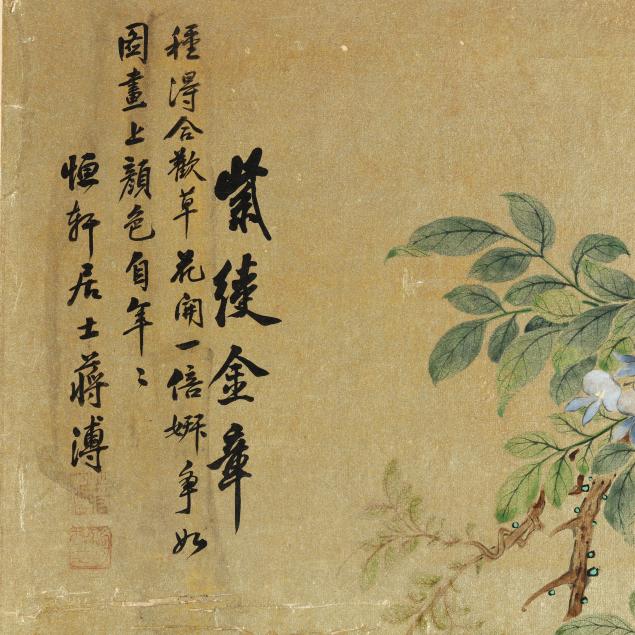 紫綬金章
種淂合歡草花開一倍妍爭如
圖畫上顏色自年〻
恒軒居士蔣溥